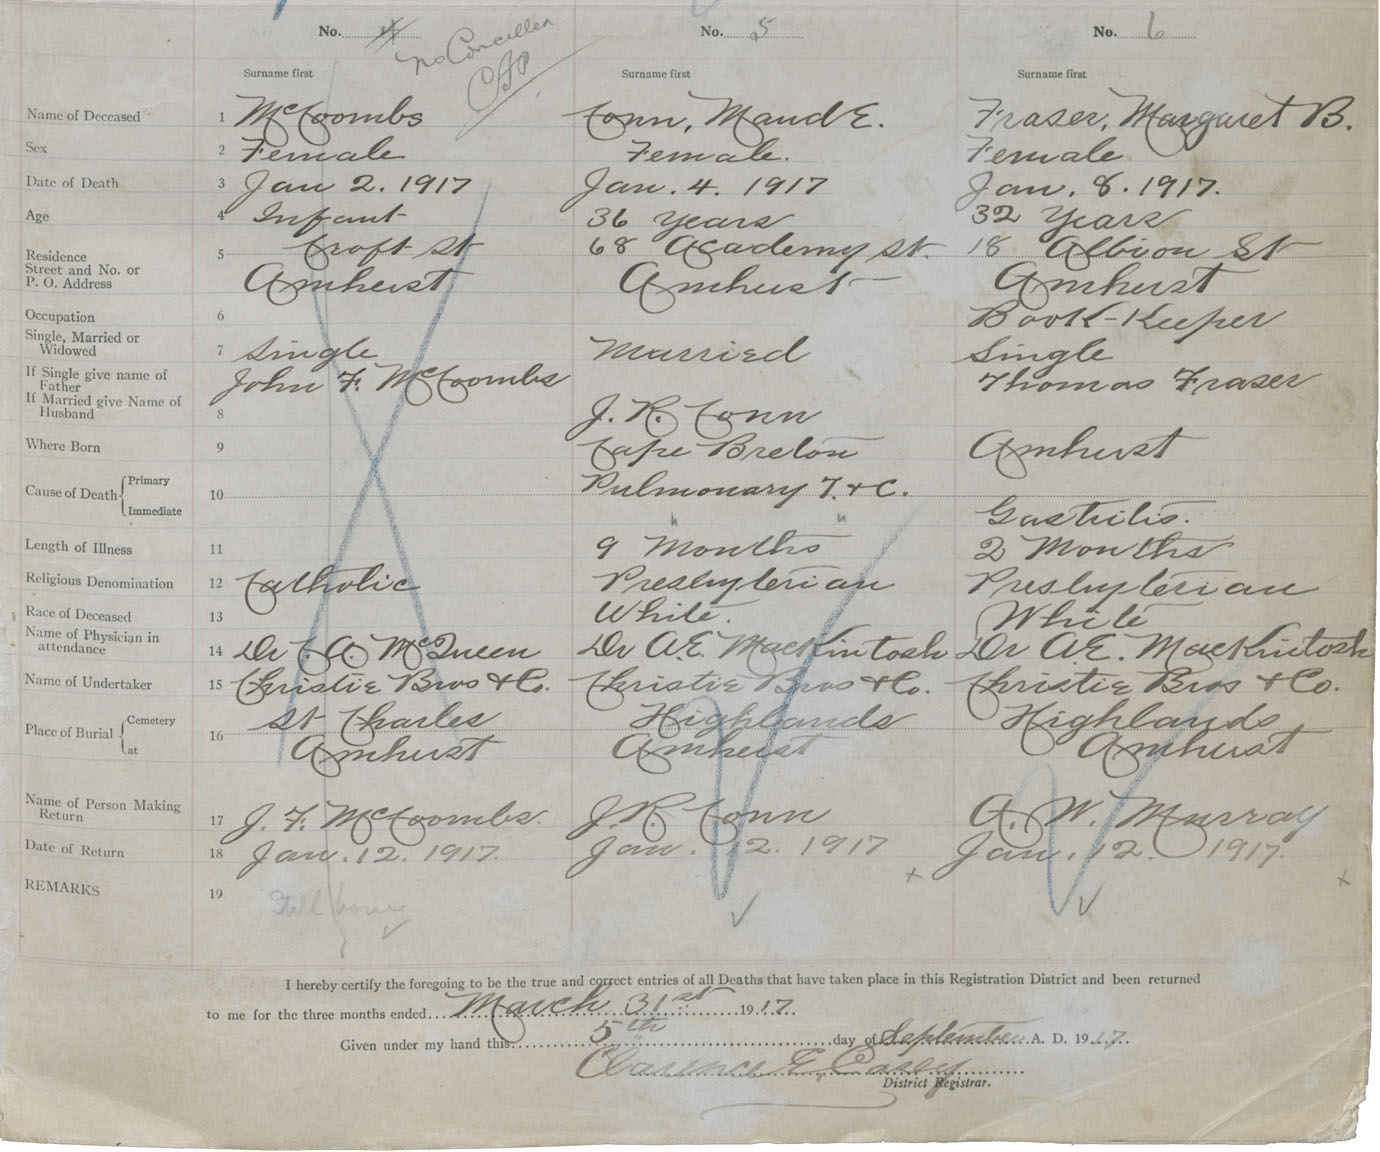 No. 4 No. 5 No. 6
Cancelled
Surname first Surname first Surname first
Name of Deceased 1 McCoombs Conn, Maud E. Fraser, Margaret B.
Sex 2 Female Female. Female
Date of Death 3 Jan 2. 1917 Jan. 4. 1917 Jan. 8. 1917.
Age 4 Infant 36 Years 32 Years
Residence 5 Croft St 68 Academy St. 18 Albion St
Street and No. or
P. O. Address Amherst Amherst Amherst
Occupation 6 Book-Keeper
Single, Married or
Widowed 7 Single Married Single
If Single give name of
Father John F. McCoombs Thomas Fraser
If Married give Name of
Husband 8 J. R. Conn
Where Born 9 Cape Breton Amherst
Cause of Death Primary 10 Pulmonary T. +C.
Immediate Gastritis.
Length of Illness 11 9 Months 2 Months
Religious Denomination 12 Catholic Presbyterian Presbyterian
Race of Deceased 13 White. White
Name of Physician in
attendance 14 Dr C. A. McQueen Dr A.E. MacKintosh Dr A.E. MacKintosh
Name of Undertaker 15 Christie Bros + Co. Christie Bros + Co. Christie Bros + Co.
Place of Burial Cemetery 16 St Charles Highlands Highlands
at Amherst Amherst Amherst
Name of Person Making
Return 17 J. F. McCoombs. J. R. Conn A. W. Murray
Date of Return 18 Jan. 12. 1917. Jan. 12. 1917 Jan. 12. 1917.
REMARKS 19 Still born
I hereby certify the foregoing to be the true and correct entries of all Deaths that have taken place in this Registration District and been returned
to me for the three months ended March 31st 1917.
Given under my hand this 5th day of September A. D. 1917.
Clarence E. Casey
District Registrar.